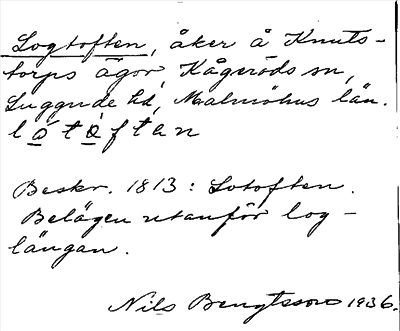 Logtoften, åker å Knuts-
torps ägor, Kågeröds sn,
Luggude hd, Malmöhus län.
lo̲t o̲ftan
Beskr. 1813: Lotoften.
Belägen utanför log-
längan.
Nils Bengtsson 1936.